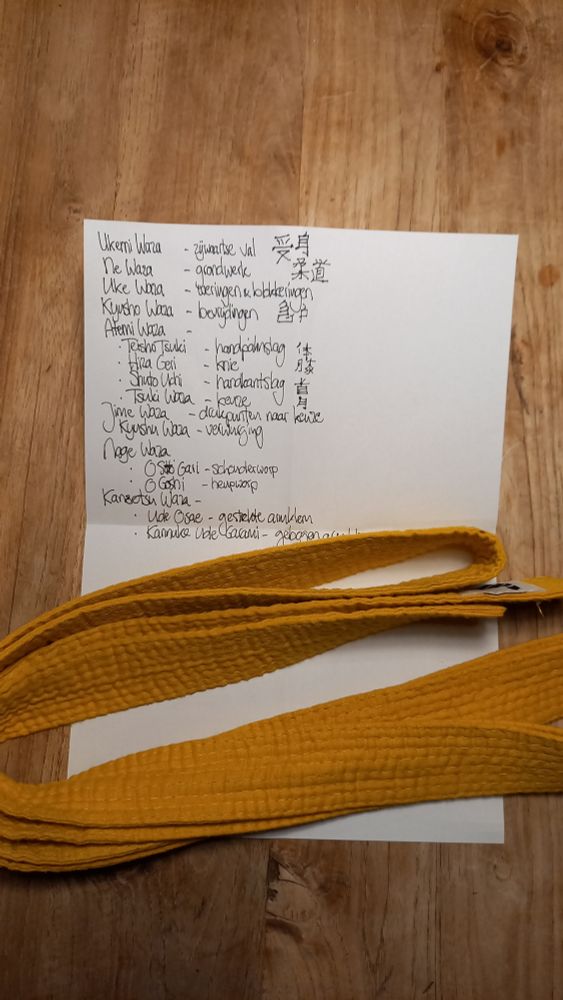 Ukemi Waza - zijwaartse val 受身
Ne Waza - grondwerk 柔道
Uke Waza - weringen & blokkeringen
Kyusho Waza - bevrijdingen
Atemi Waza -
· Teisho Tsuki - handpalmslag
· Hiza Geri - knie
· Shuto Uchi - handkantslag
· Tsuki Waza - keuze
Jime Waza - drukpunten naar keuze
Kyusho Waza - verwurging
Nage Waza
· O Gari - schouderworp
· O Goshi - heupworp
Kansetsu Waza -
· Ude Osae - gestrekte armklem
· Kannuke Ude Garami - gebogen